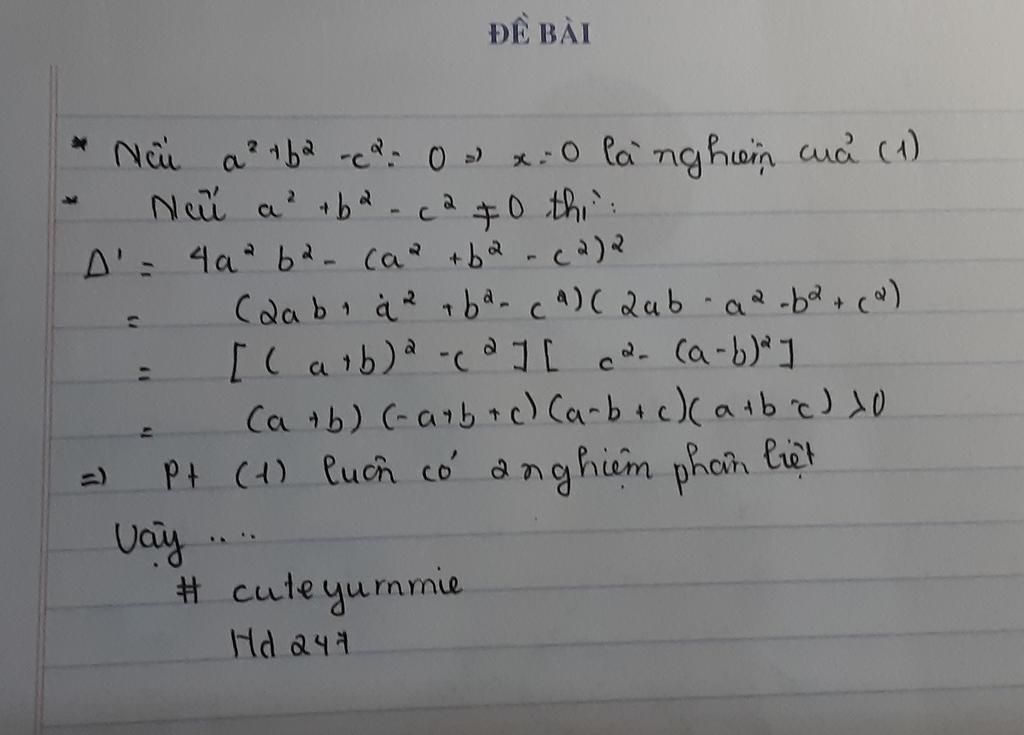 ĐỀ BÀI
* Nếu a² + b² - c² = 0 => x = 0 là nghiệm cuả (1)
* Nếu a² + b² - c² ≠ 0 thì:
Δ' = 4a² b² - (a² + b² - c²)²
= (2ab + a² + b² - c²)(2ab - a² - b² + c²)
= [( a+b)² - c²][ c² - (a-b)²]
= (a + b) (-a+b + c)(a-b + c)(a+b - c) > 0
=> Pt (1) luôn có 2 nghiệm phân biệt
Vậy ....
# cuteyummie
Hd 247